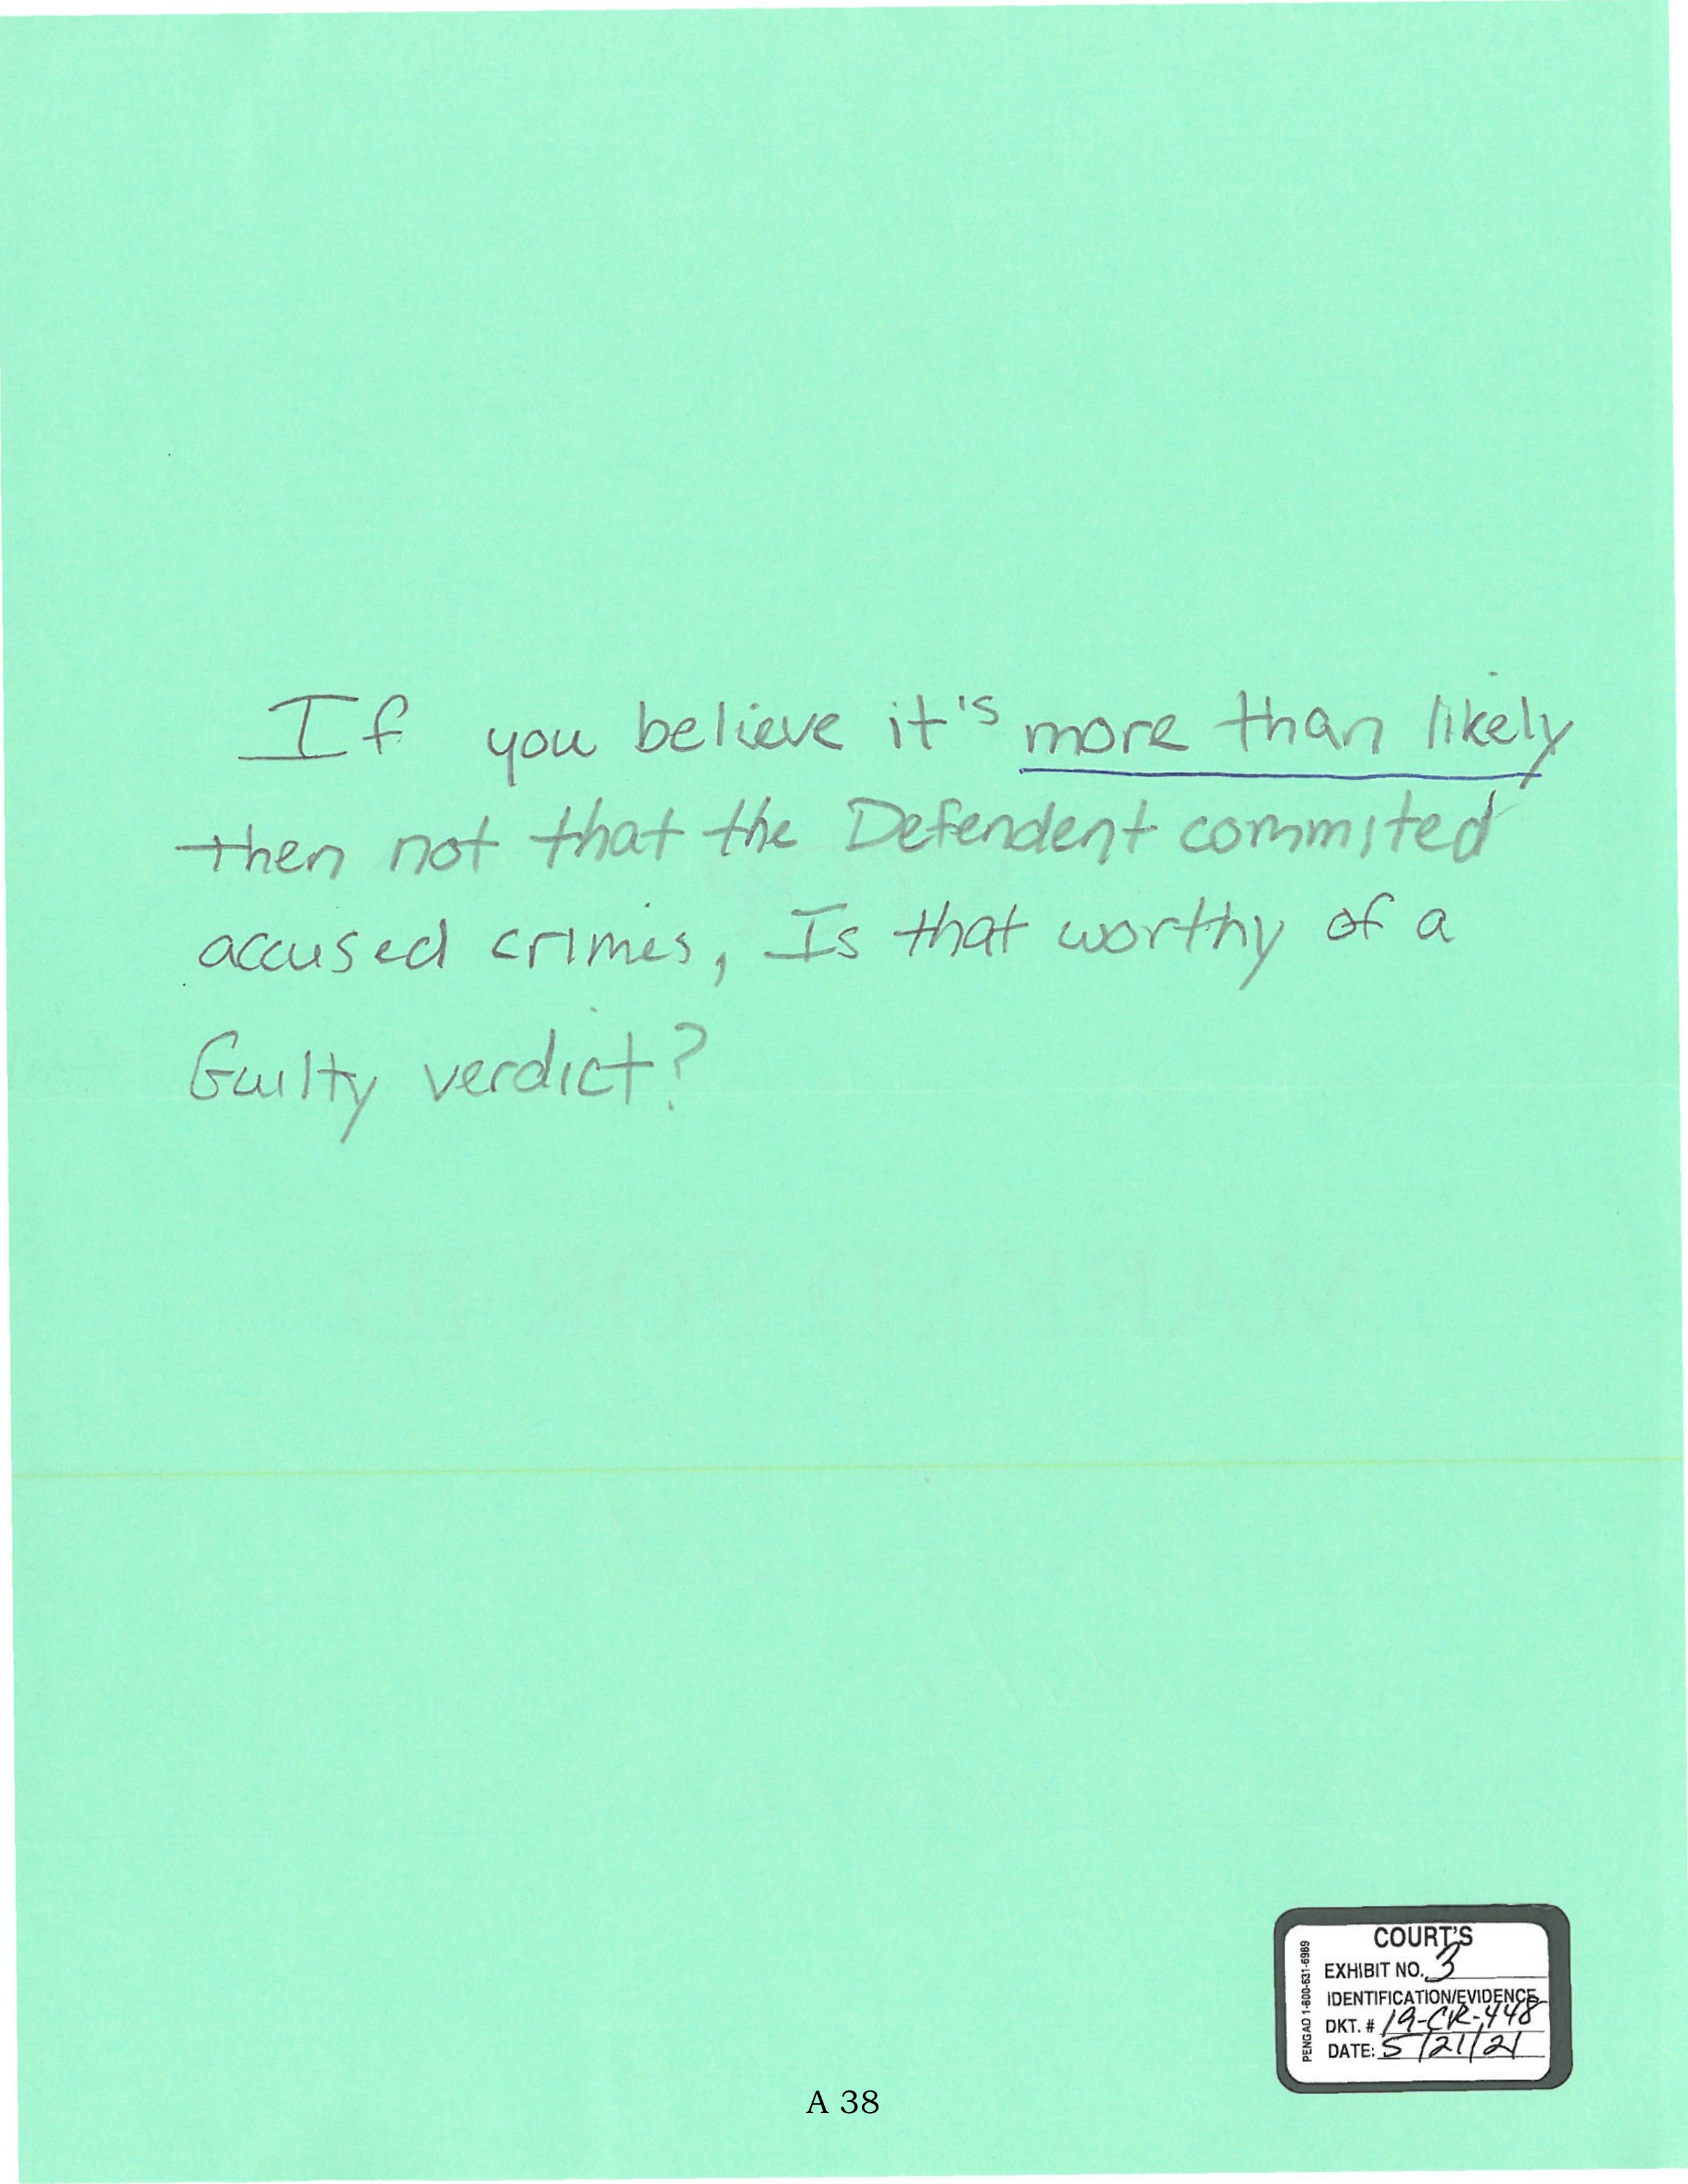 If you believe it's more than likely
then not that the Defendent commited
accused crimes, Is that worthy of a
Guilty verdict?
COURT'S
EXHIBIT NO. 3
IDENTIFICATION/EVIDENCE
DKT. # 19-CR-448
DATE: 5/21/21
PENGAD 1-800-631-6989
A 38